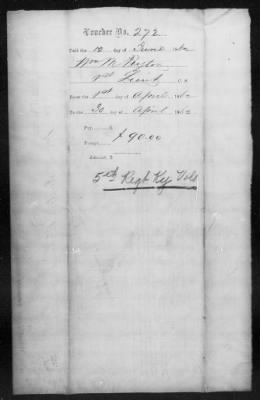 Voucher No. 272
Paid the 10 day of June 1862
Wm M
1st Lieut, Co.
From the 1st of April 1862
To the 30 of April 1862
Pay, $
Forage,
$90.00
Amount, $
5th Regt Ky Vols